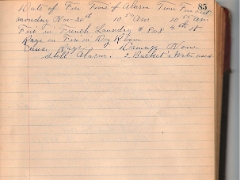 85
Date of Fire Time of Alarm Time Fire Out
Monday Nov 20th 10 AM 10 AM
Fire in French Laundry
Rags in Fire in Dry Room
Cause Rags Damage None
Still Alarm. 2 Buckets Water used